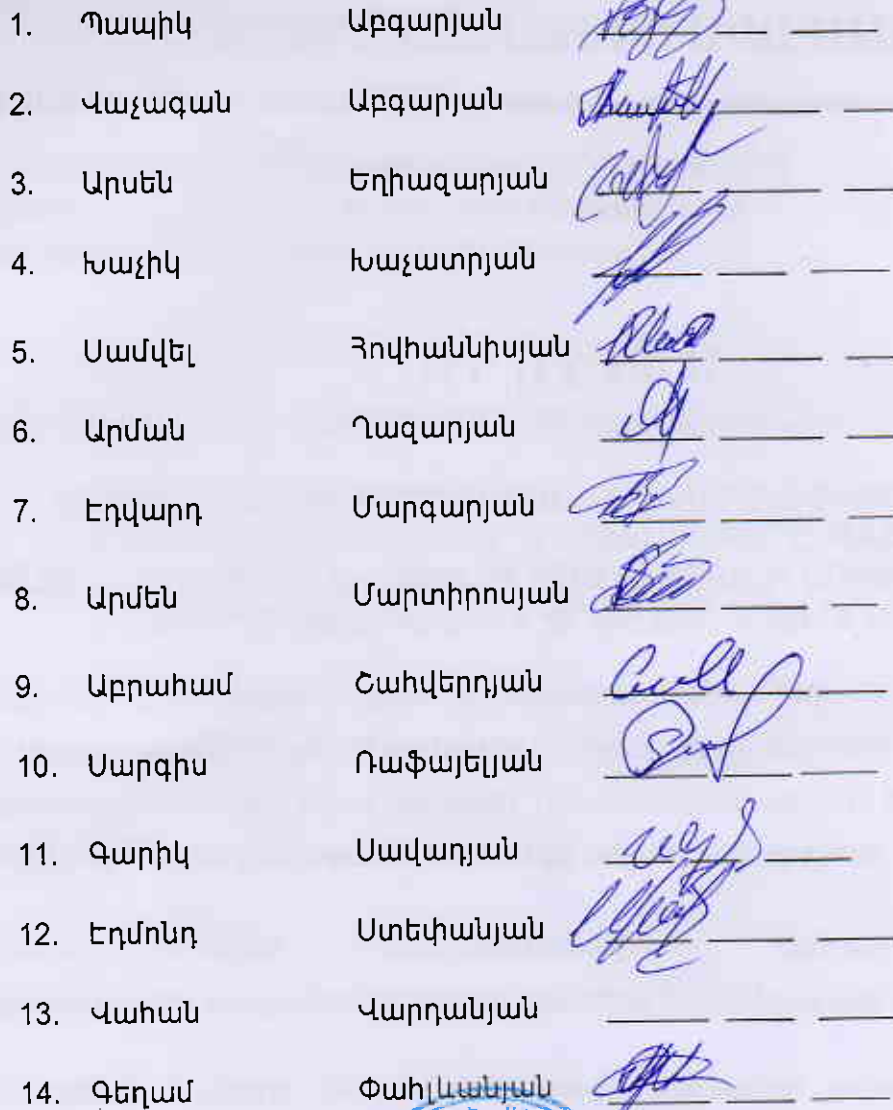 1. Պապիկ Աբգարյան
2. Վաչագան Աբգարյան
3. Արսեն Եղիազարյան
4. Խաչիկ Խաչատրյան
5. Սամվել Հովհաննիսյան
6. Արման Ղազարյան
7. Էդվարդ Մարգարյան
8. Արմեն Մարտիրոսյան
9. Աբրահամ Շահվերդյան
10. Սարգիս Ռաֆայելյան
11. Գարիկ Սավադյան
12. Էդմոնդ Ստեփանյան
13. Վահան Վարդանյան
14. Գեղամ Փահլևանյան